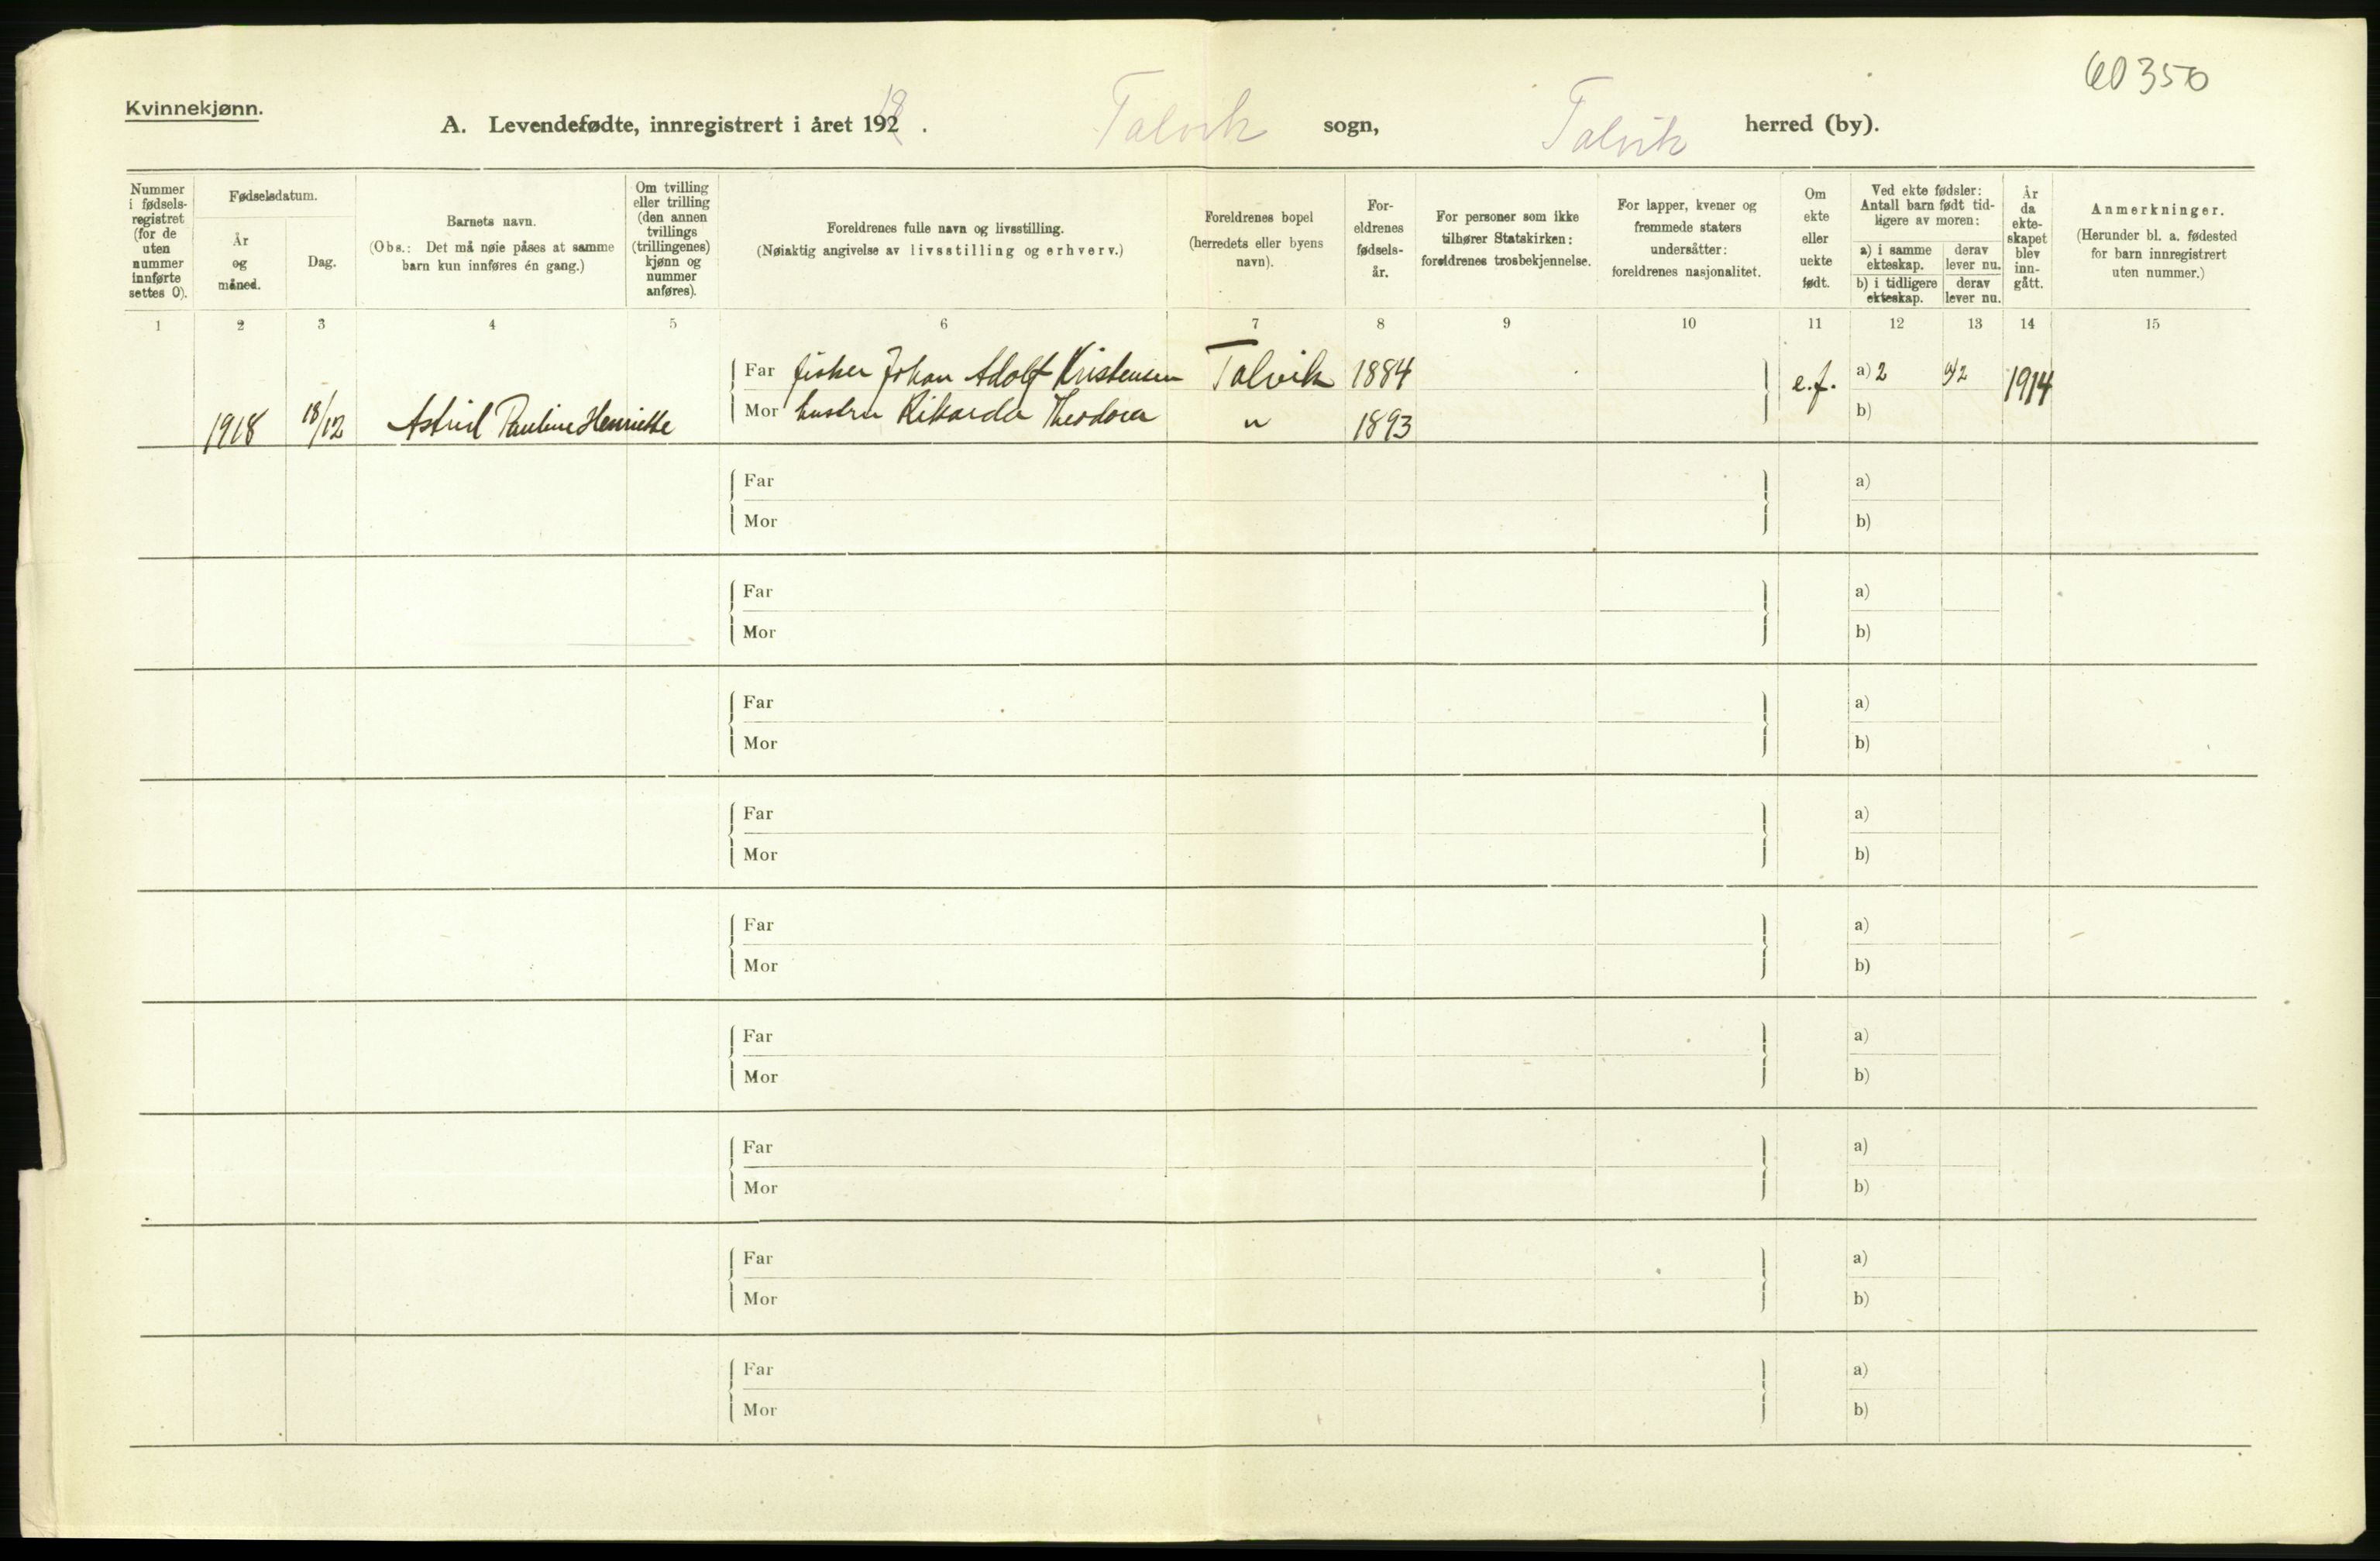 60350
Kvinnekjønn.
A. Levendefødte, innregistrert i året 192 18. Talvik sogn, Talvik herred (by).
Nummer i fødsels-registret (for de uten nummer innførte settes 0).
Fødselsdatum.
År og måned.
Dag.
Barnets navn.
(Obs.: Det må nøie påses at samme barn kun innføres én gang.)
Om tvilling eller trilling (den annen tvillings (trillingenes) kjønn og nummer anføres).
Foreldrenes fulle navn og livsstilling.
(Nøiaktig angivelse av livsstilling og erhverv.)
Foreldrenes bopel (herredets eller byens navn).
For-eldrenes fødsels-år.
For personer som ikke tilhører Statskirken: foreldrenes trosbekjennelse.
For lapper, kvener og fremmede staters undersåtter: foreldrenes nasjonalitet.
Om ekte eller uekte født.
Ved ekte fødsler: Antall barn født tid-ligere av moren:
a) i samme ekteskap. derav lever nu.
b) i tidligere ekteskap. derav lever nu.
År da ekte-skapet blev inn-gått.
Anmerkninger.
(Herunder bl. a. fødested for barn innregistrert uten nummer.)
1 2 3 4 5 6 7 8 9 10 11 12 13 14 15
Far fisker Johan Adolf Kristensen Talvik 1884 e.f. a) 2 a) 2 1914
1918 18/12 Astrid Pauline Henriette Mor hustru Rikarda Theodora " 1893 b)
Far a)
Mor b)
Far a)
Mor b)
Far a)
Mor b)
Far a)
Mor b)
Far a)
Mor b)
Far a)
Mor b)
Far a)
Mor b)
Far a)
Mor b)
Far a)
Mor b)